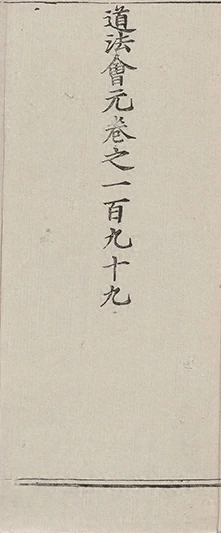 道法會元卷之一百九十九